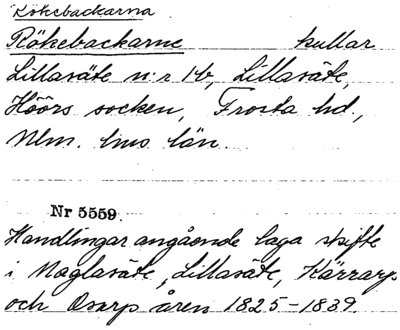 Rökebackarna
Rökebackarne kullar
Lillasäte n:r 1b, Lillasäte,
Höörs socken, Frosta hd,
Mlm. hus län.
Nr 5559.
Handlingar angående laga skifte
i Maglasäte, Lillasäte, Kärrarp
och Osarp åren 1825-1839.